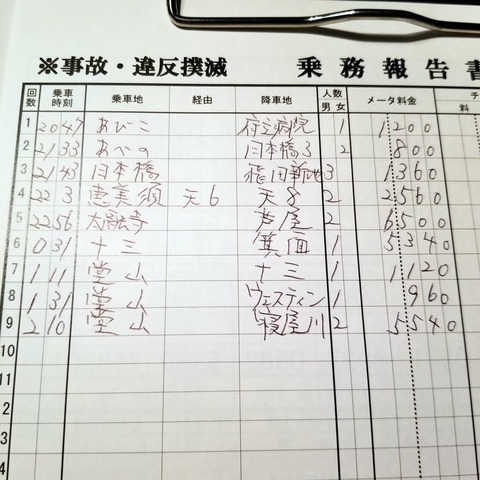 ※事故・違反撲滅 乗務報告書
回数 乗車時刻 乗車地 経由 降車地 人数 男 女 メータ料金 チ 料
1 20 47 あびこ 府立病院 1 1200
2 21 33 あべの 日本橋3 2 800
3 21 43 日本橋 飛田新地 3 1360
4 22 3 恵美須 天6 天8 2 2560
5 22 56 太融寺 芦屋 2 6500
6 0 31 十三 箕面 1 5340
7 1 11 堂山 十三 1 1120
8 1 31 堂山 ウェスティン 1 960
9 2 10 堂山 寝屋川 2 5540
10
1
2
3
4